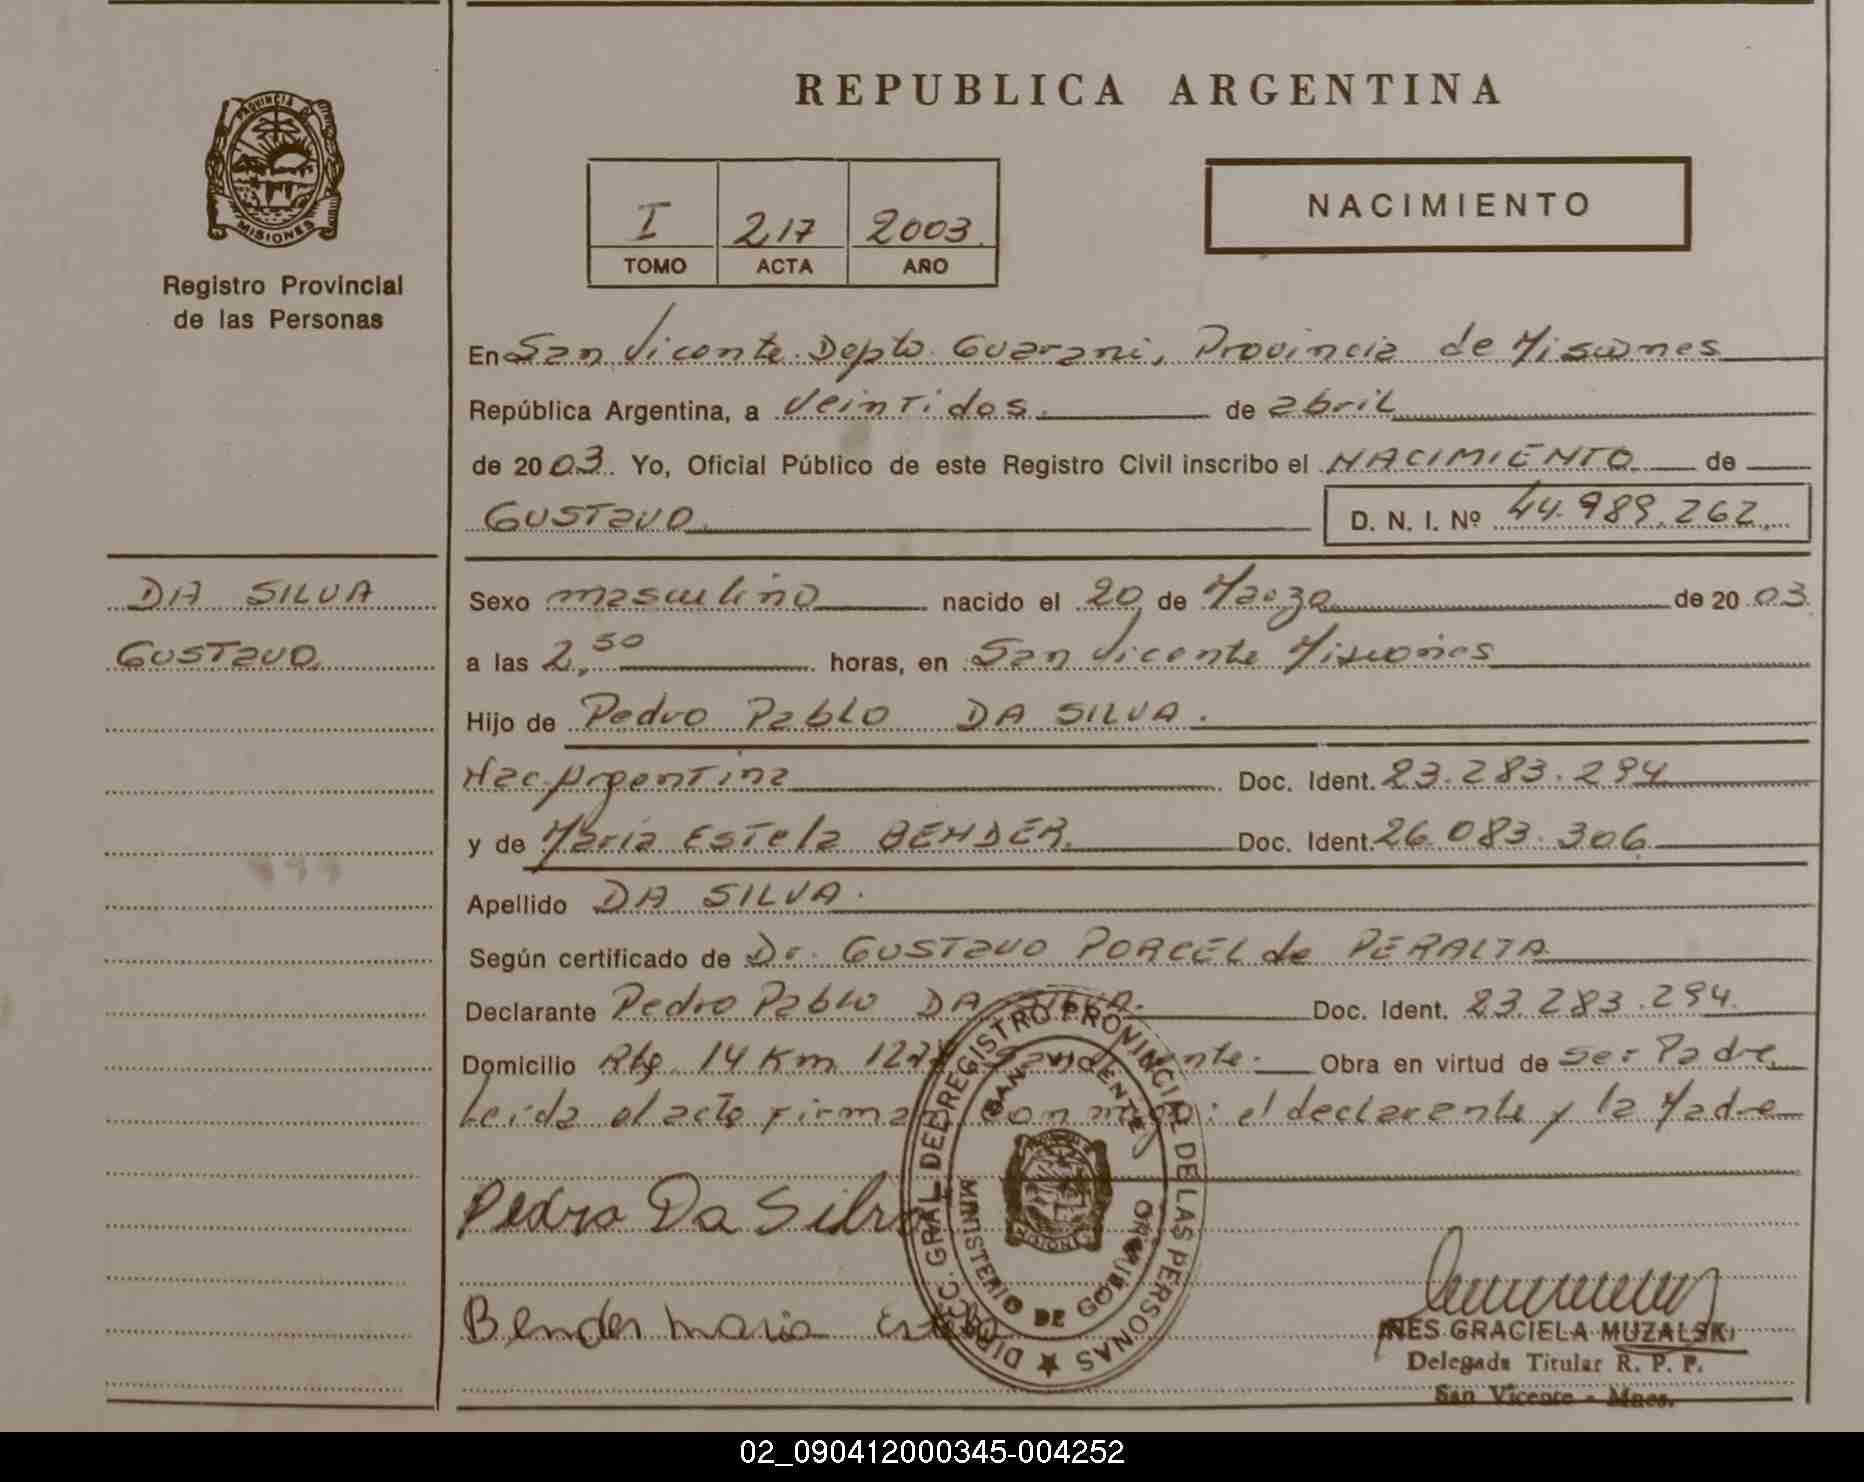 REPUBLICA ARGENTINA
PROVINCIA DE MISIONES
Registro Provincial
de las Personas
I 217 2003
TOMO ACTA AÑO
NACIMIENTO
En San Vicente Depto Guarani, Provincia de Misiones
República Argentina, a veintidos de abril
de 2003. Yo, Oficial Público de este Registro Civil inscribo el NACIMIENTO de
GUSTavo D. N. I. Nº 44.989.262
DA SILVA
GUSTavo
Sexo masculino nacido el 20 de Marzo de 2003
a las 2,50 horas, en San Vicente Misiones
Hijo de Pedro Pablo DA SILVA.
Nac. Argentina Doc. Ident. 23.283.294
y de Maria Estela BENDER. Doc. Ident. 26.083.306
Apellido DA SILVA.
Según certificado de Dr. GUSTavo PORCEL de PERALTA
Declarante Pedro Pablo DA SILVA. Doc. Ident. 23.283.294
Domicilio 14 Km San Vicente. Obra en virtud de ser Padre
Leida el acta firma conmigo: el declarante y la Madre
Pedro Da Silva
Bender maria Estela
DIRECC. GRAL. DEL REGISTRO PROVINCIAL DE LAS PERSONAS
SAN VICENTE
MINISTERIO DE GOBIERNO
INES GRACIELA MUZALSKI
Delegada Titular R. P. P.
San Vicente - Mnes.
02_090412000345-004252